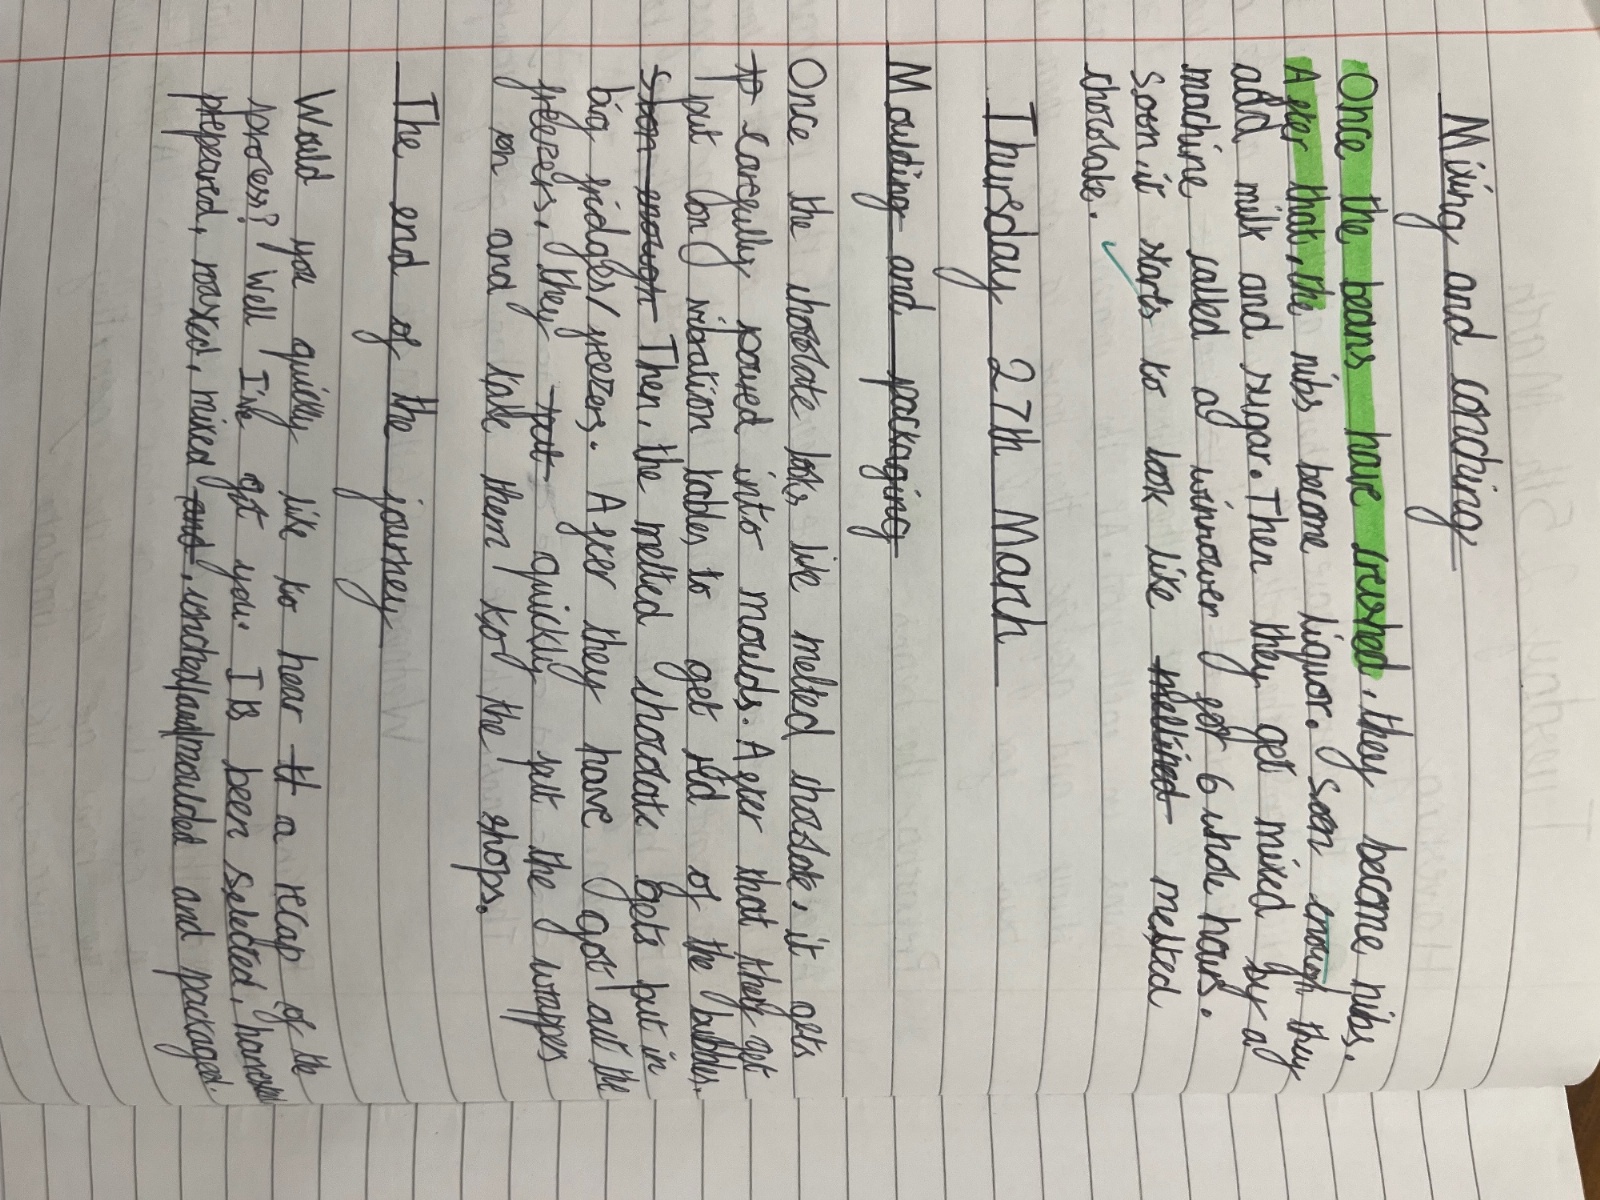 Mixing and conching
Once the beans have crushed, they become nibs.
After that, the nibs become liquor. Soon enough they
add milk and sugar. Then they get mixed by a
machine called a winnower for 6 whole hours.
Soon, it starts to look like melted
chocolate.
Thursday 27th March
Moulding and packaging
Once the chocolate looks like melted chocolate, it gets
carefully poured into moulds. After that they get
put on vibration tables to get rid of the bubbles.
Soon enough Then, the melted chocolate gets put in
big fridges/freezers. After they have got out the
freezers, they put quickly put the wrappes
on and take them to the shops.
The end of the journey
Would you quickly like to hear a recap of the
process? Well I've got you. It's been selected, harvested
prepeared, roasted, mixed and, conched and moulded and packaged.